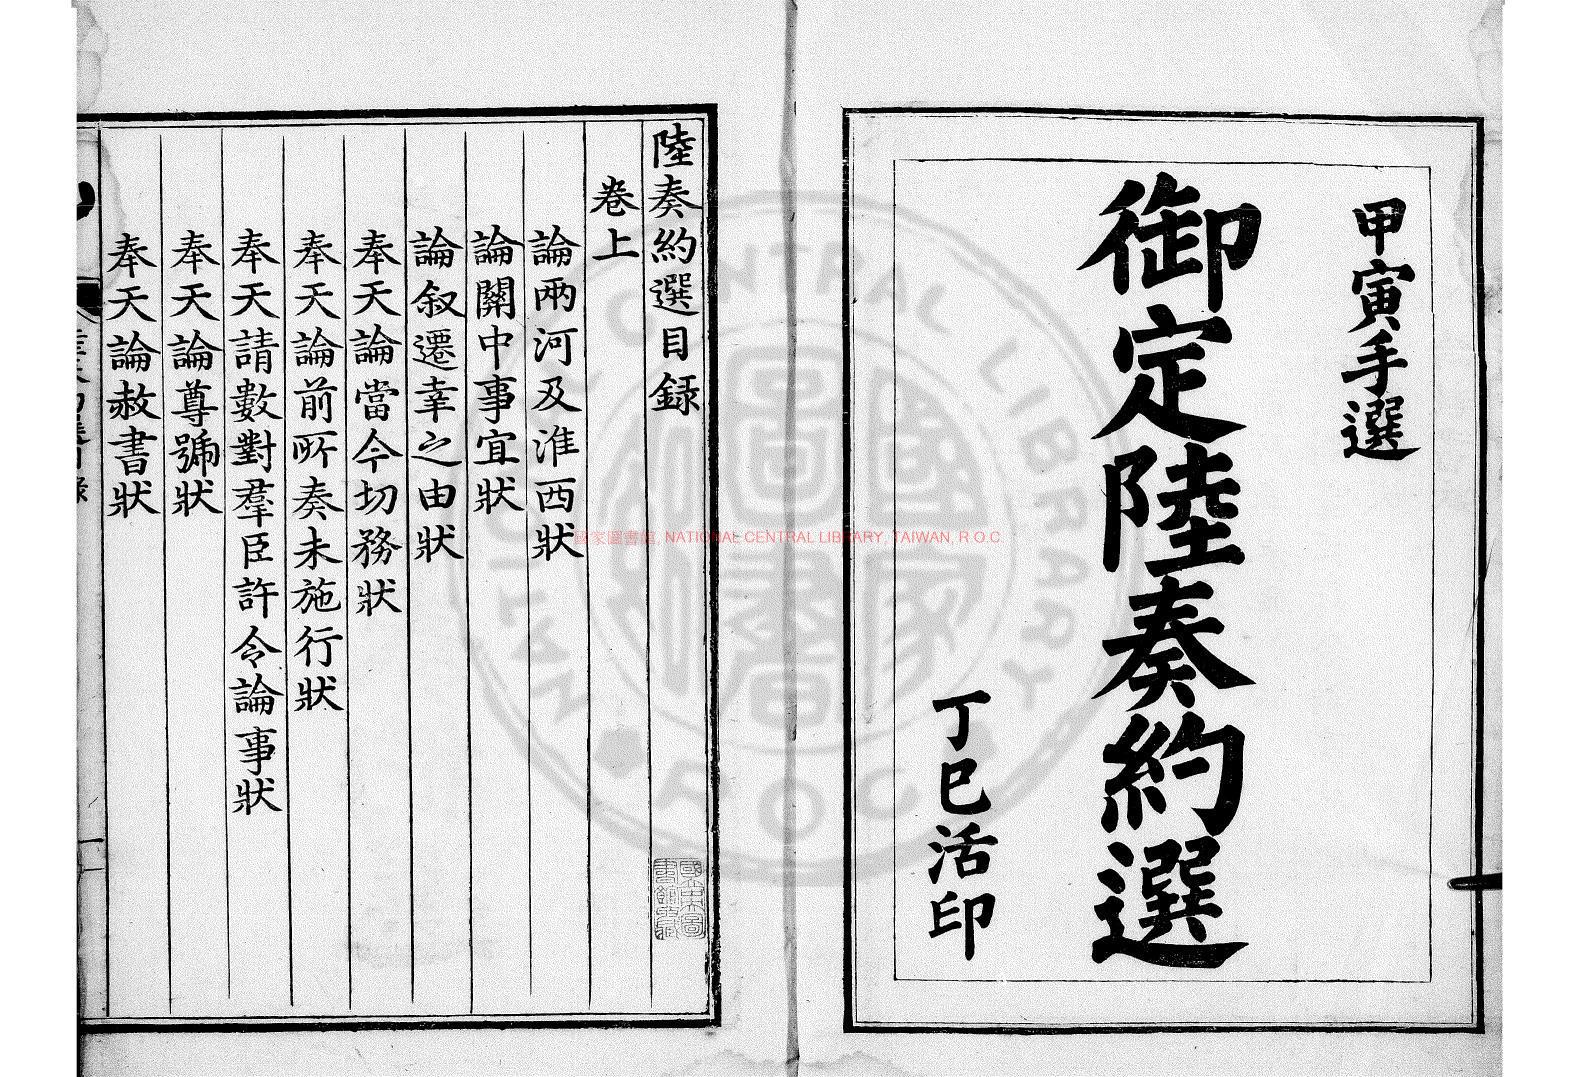 甲寅手選
御定陸奏約選
丁巳活印
陸奏約選目録
卷上
論兩河及淮西狀
論關中事宜狀
論叙遷幸之由狀
奉天論當今切務狀
奉天論前所奏未施行狀
奉天請數對羣臣許令論事狀
奉天論尊號狀
奉天論赦書狀
國家圖書館, NATIONAL CENTRAL LIBRARY, TAIWAN, R.O.C.